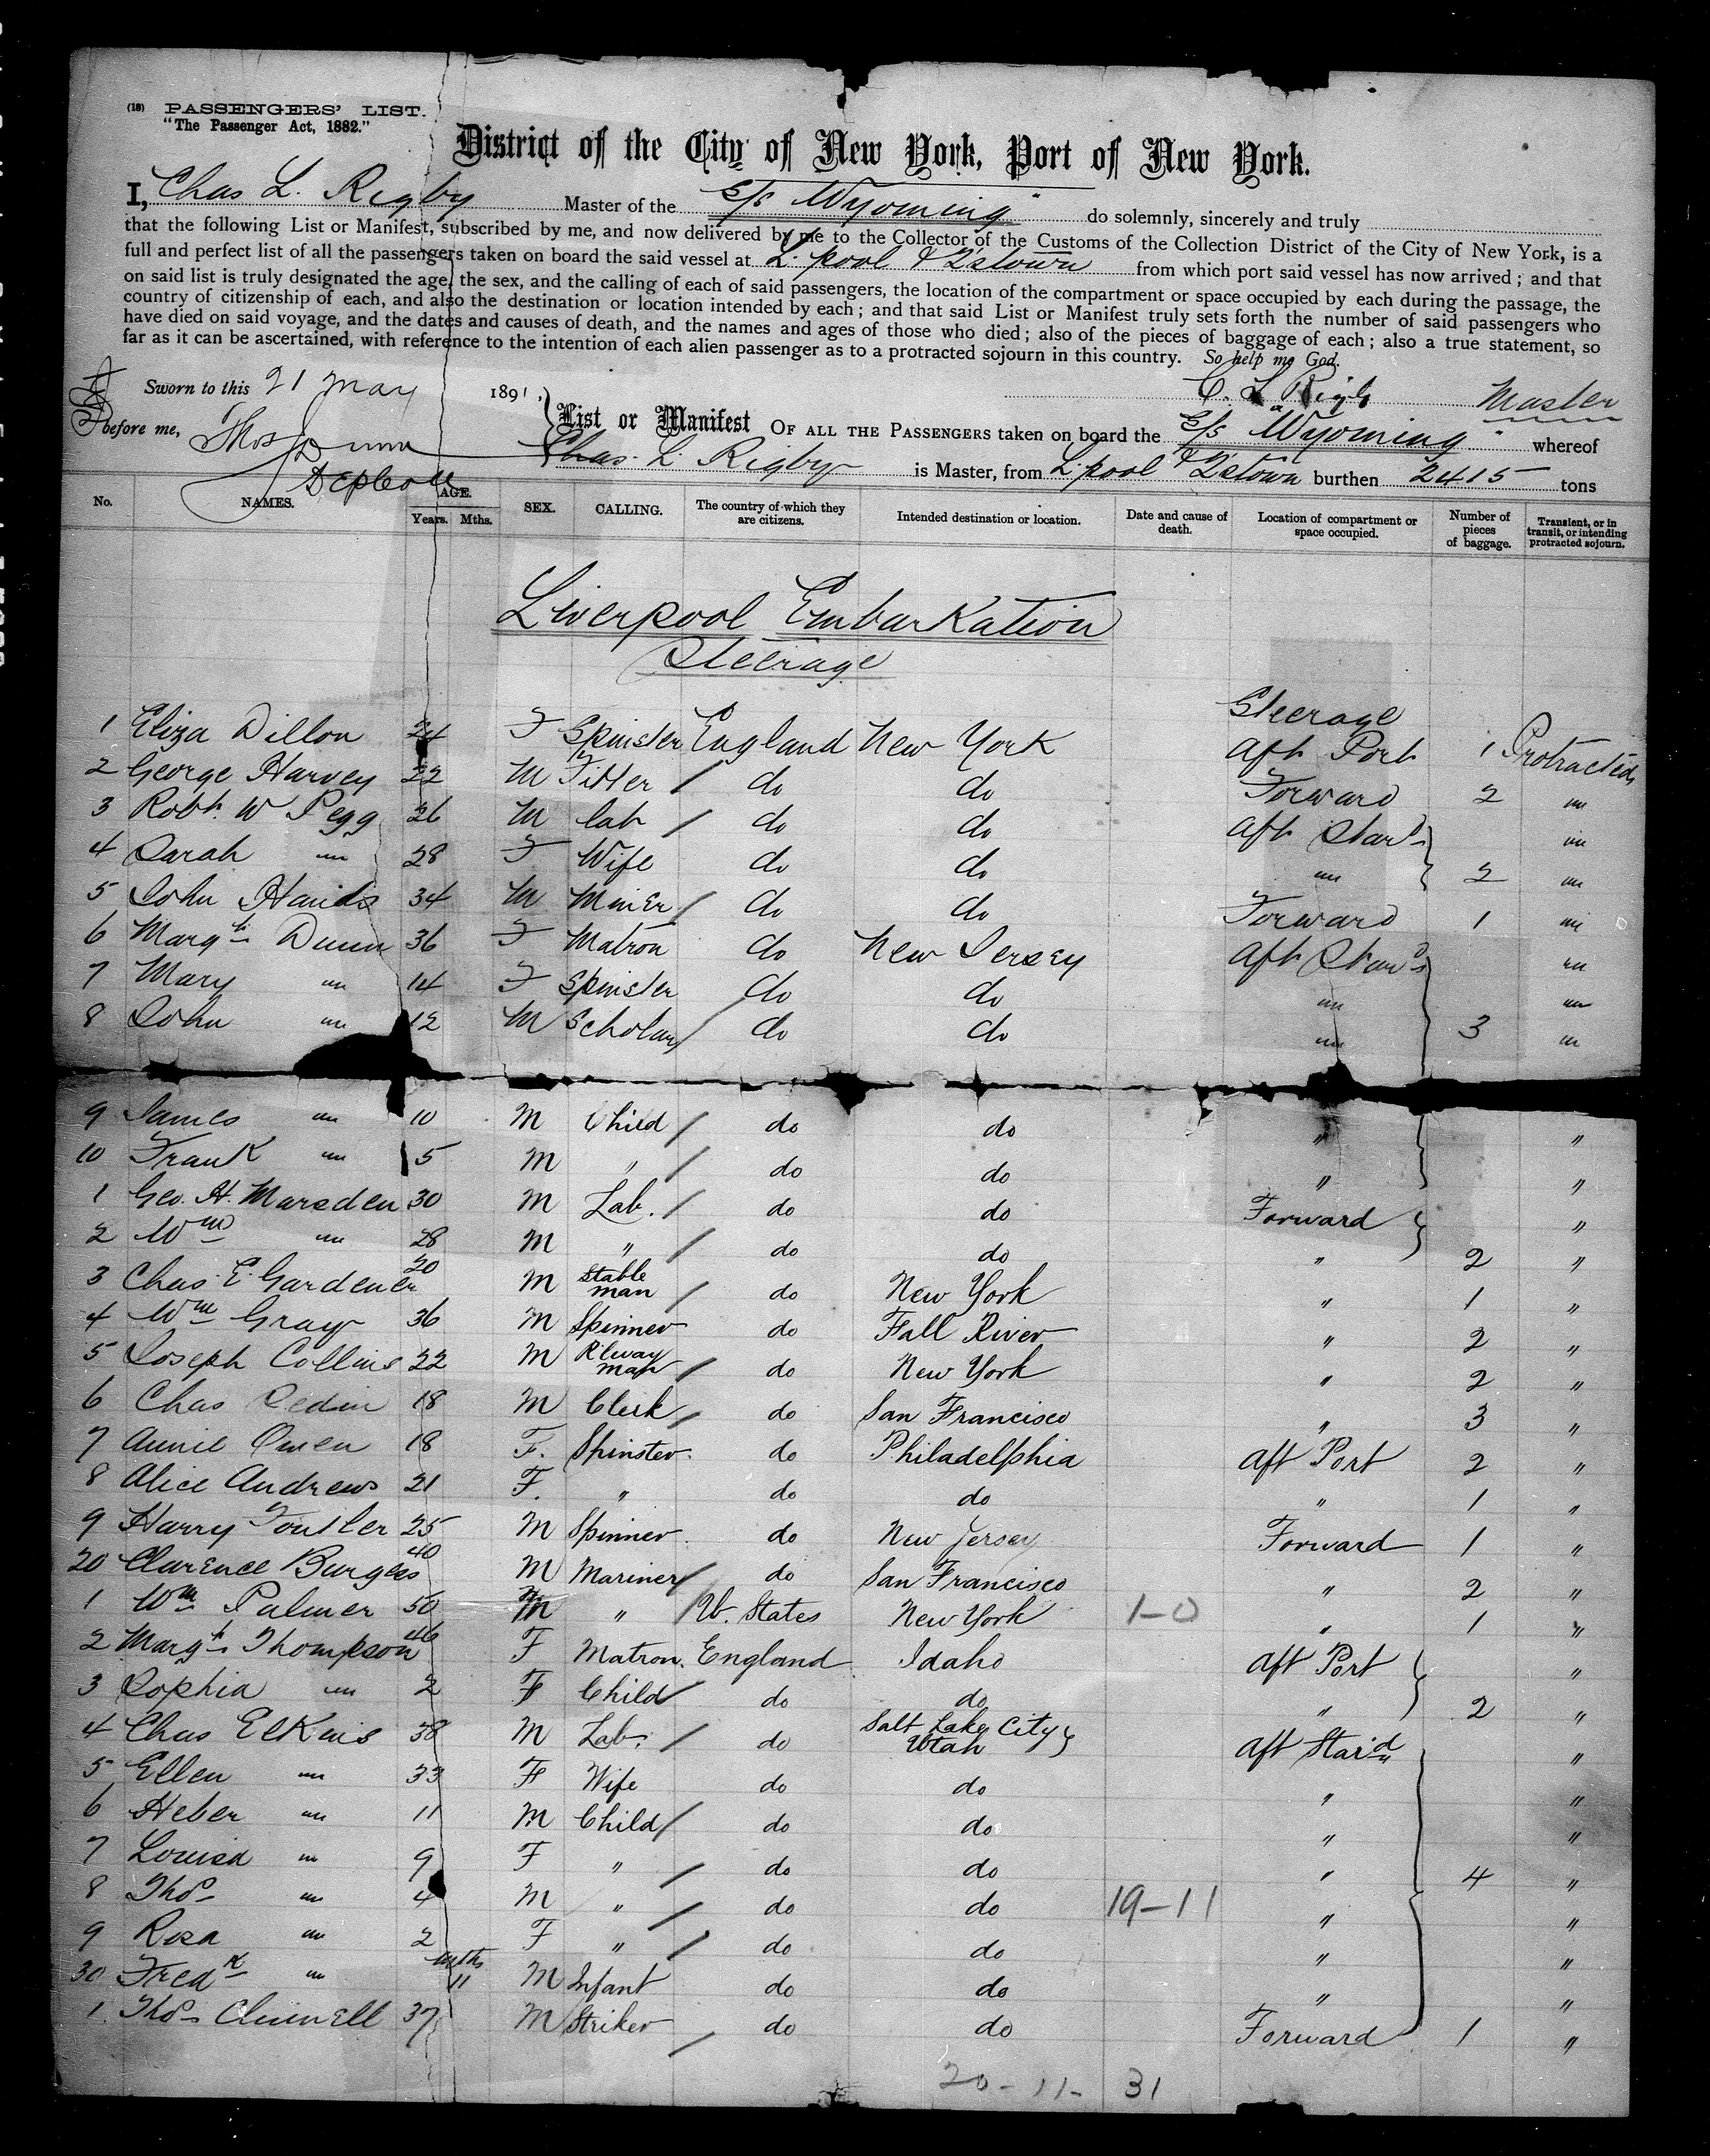 (18) PASSENGERS' LIST.
"The Passenger Act, 1882."
District of the City of New York, Port of New York.
I, Chas L. Rigby Master of the S/s "Wyoming" do solemnly, sincerely and truly
that the following List or Manifest, subscribed by me, and now delivered by me to the Collector of the Customs of the Collection District of the City of New York, is a
full and perfect list of all the passengers taken on board the said vessel at L'pool & Q'stown from which port said vessel has now arrived; and that
on said list is truly designated the age, the sex, and the calling of each of said passengers, the location of the compartment or space occupied by each during the passage, the
country of citizenship of each, and also the destination or location intended by each; and that said List or Manifest truly sets forth the number of said passengers who
have died on said voyage, and the dates and causes of death, and the names and ages of those who died; also of the pieces of baggage of each; also a true statement, so
far as it can be ascertained, with reference to the intention of each alien passenger as to a protracted sojourn in this country. So help me God.
Sworn to this 21 May 1891,
C. L. Rigby Master
before me, Thos Dunn
List or Manifest OF ALL THE PASSENGERS taken on board the S/s "Wyoming" whereof
Chas. L. Rigby is Master, from L'pool & Q'stown burthen 2415 tons
No. NAMES. AGE. Years. Mths. SEX. CALLING. The country of which they are citizens. Intended destination or location. Date and cause of death. Location of compartment or space occupied. Number of pieces of baggage. Transient, or in transit, or intending protracted sojourn.
Liverpool Embarkation
Steerage
Steerage
1 Eliza Dillon 24 F Spinster England New York Aft Port 1 Protracted
2 George Harvey 22 M Fitter / do do Forward 2 "
3 Robt. W Pegg 26 M Lab / do do Aft Star'd "
4 Sarah " 28 F Wife do do " 2 "
5 John Hands 34 M Miner / do do Forward 1 "
6 Margt Dunn 36 F Matron do New Jersey Aft Star'd "
7 Mary " 14 F Spinster do do " "
8 John " 12 M Scholar / do do " 3 "
9 James " 10 M Child / do do " "
10 Frank " 5 M " / do do " "
1 Geo. H. Marsden 30 M Lab. / do do Forward "
2 Wm " 28 M " / do do " 2 "
3 Chas. E. Gardener 20 M Stable man / do New York " 1 "
4 Wm Gray 36 M Spinner do Fall River " 2 "
5 Joseph Collins 22 M R'lway man / do New York " 2 "
6 Chas 18 M Clerk / do San Francisco " 3 "
7 Annie Owen 18 F. Spinster do Philadelphia Aft Port 2 "
8 Alice Andrews 21 F. " do do " 1 "
9 Harry 25 M Spinner do New Jersey Forward 1 "
20 Clarence Burgess 40 M Mariner / do San Francisco " 2 "
1 Wm Palmer 50 M " / U. States New York 1-0 " 1 "
2 Margt Thompson 46 F Matron. England Idaho Aft Port "
3 Sophia " 2 F Child do do " 2 "
4 Chas Elkins 38 M Lab. / do Salt Lake City Utah Aft Star'd "
5 Ellen " 33 F Wife do do " "
6 Heber " 11 M Child / do do " "
7 Louisa " 9 F " / do do " 4 "
8 Thos " 4 M " / do do 19-11 " "
9 Rosa " 2 F " / do do " "
30 Fredk " mths 11 M Infant do do " "
1. Thos 37 M Striker / do do Forward 1 "
20-11- 31